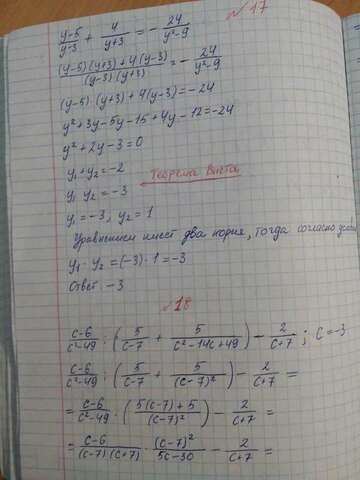 №17
(y-5)/(y-3) + 4/(y+3) = - 24/(y²-9)
((y-5)(y+3)+4(y-3))/((y-3)(y+3)) = - 24/(y²-9)
(y-5)·(y+3)+4(y-3)=-24
y²+3y-5y-15+4y-12=-24
y²+2y-3=0
y₁+y₂=-2
Теорема Виета
y₁ y₂ = -3
y₁=-3; y₂=1
Уравнением имеет два корня, тогда согласно
y₁· y₂ =(-3)·1=-3
Ответ: -3
№18
(c-6)/(c²-49) : (5/(c-7) + 5/(c²-14c+49)) - 2/(c+7) ; c=-3
(c-6)/(c²-49) : (5/(c-7) + 5/(c-7)²) - 2/(c+7) =
= (c-6)/(c²-49) : ((5(c-7)+5)/(c-7)²) - 2/(c+7) =
= (c-6)/((c-7)(c+7)) · (c-7)²/(5c-30) - 2/(c+7) =